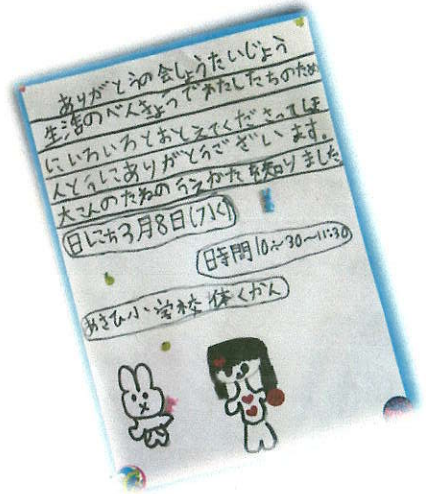 ありがとうの会しょうたいじょう
生活のべんきょうでわたしたちのため
にいろいろとおしえてくださってほ
んとうにありがとうございます。
大こんのたねのうえかたを知りました
日にち3月8日(水)
時間10~30~11:30
あさひ小学校 体くかん